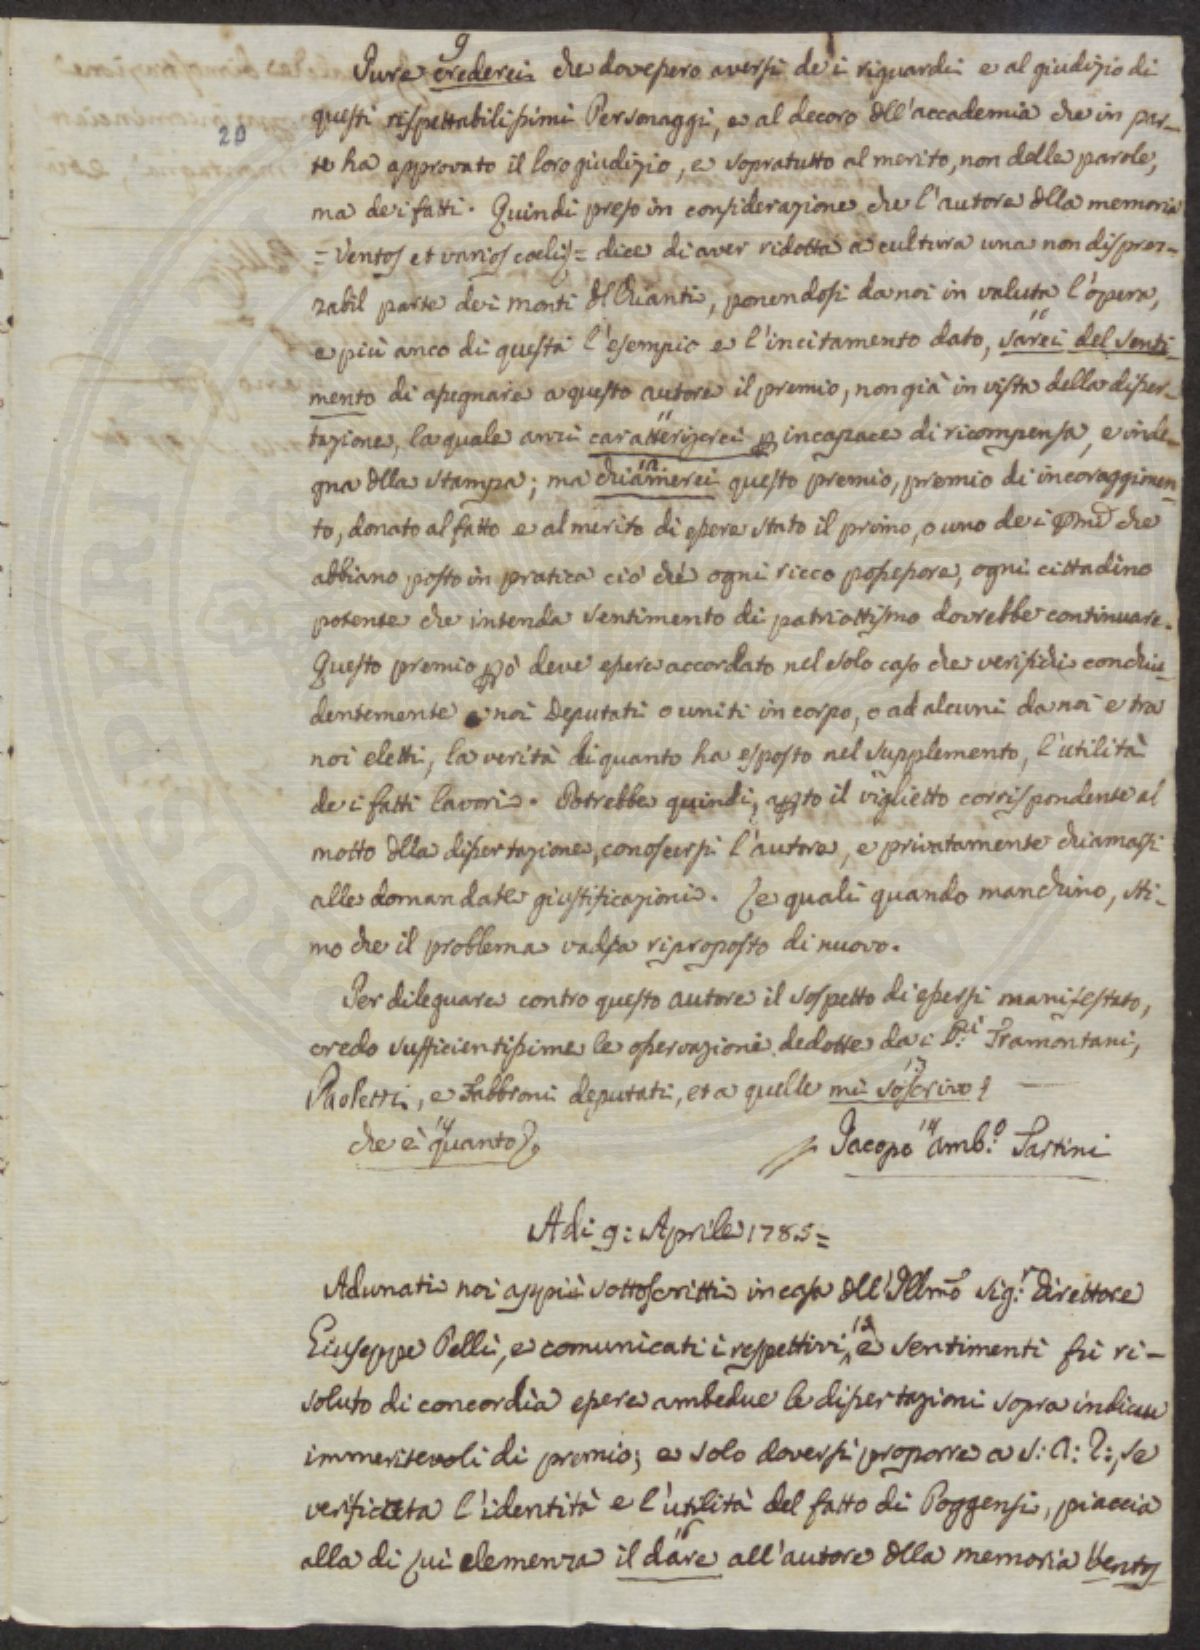 9
Pure crederei che dovessero aversi dei riguardi e al giudizio di
20
questi rispettabilissimi Personaggi, e al decoro dll'accademia che in par-
te ha approvato il loro giudizio, e sopratutto al merito, non delle parole,
ma dei fatti. Quindi preso in considerazione che l'autore dlla memoria
= Ventos et varios coelis = dice di aver ridotta a cultura una non disprez-
zabil parte dei monti dl Chianti, ponendosi da noi in valuta l'opera,
e più anco di questa l'esempio e l'incitamento dato, sarei del senti-
mento di assegnare a questo autore il premio, non già in vista della disser-
tazione, la quale anzi caratterizerei p incapace di ricompensa, e inde-
gna dlla stampa; ma chiamerei questo premio, premio di incoraggimen-
to, donato al fatto e al merito di essere stato il primo, o uno dei pmi che
abbiano posto in pratica ciò che ogni ricco possessore, ogni cittadino
potente che intenda sentimento di patriottismo dovrebbe continuare.
Questo premio pò deve essere accordato nel solo caso che verifichi conclu-
dentemente a noi Deputati o uniti in corpo, o ad alcuni da noi e tra
noi eletti, la verità di quanto ha esposto nel supplemento, l'utilità
dei fatti lavori. Potrebbe quindi, apto il viglietto corrispondente al
motto dlla dissertazione, conoscersi l'autore, e privatamente chiamassi
alle domandate giustificazioni. Le quali quando manchino, sti-
mo che il problema vadia riproposto di nuovo.
Per dileguare contro questo autore il sospetto di essersi manifestato,
credo sufficientissime le osservazioni dedotte dai S.ri Tramontani,
Paoletti, e Fabbroni deputati, et a quelle mi soscrivo
che è quanto
14
Jacopo Amb.o Tartini
Adi 9: Aprile 1785=
Adunati noi appiè sottoscritti in casa dll'Illmo Sig.r Direttore
Giuseppe Pelli, e comunicati i respettivi, e sentimenti fu ri-
soluto di concordia essere ambedue le dissertazioni sopra indicate
immeritevoli di premio; e solo doversi proporre a S: A: R:, se
verificata l'identità e l'utilità del fatto di Poggensi, piaccia
alla di Lui clemenza il dare all'autore dlla memoria Ventos